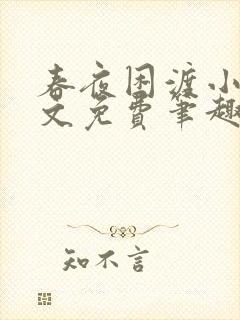 春夜困渡小
文免费笔趣
知不言